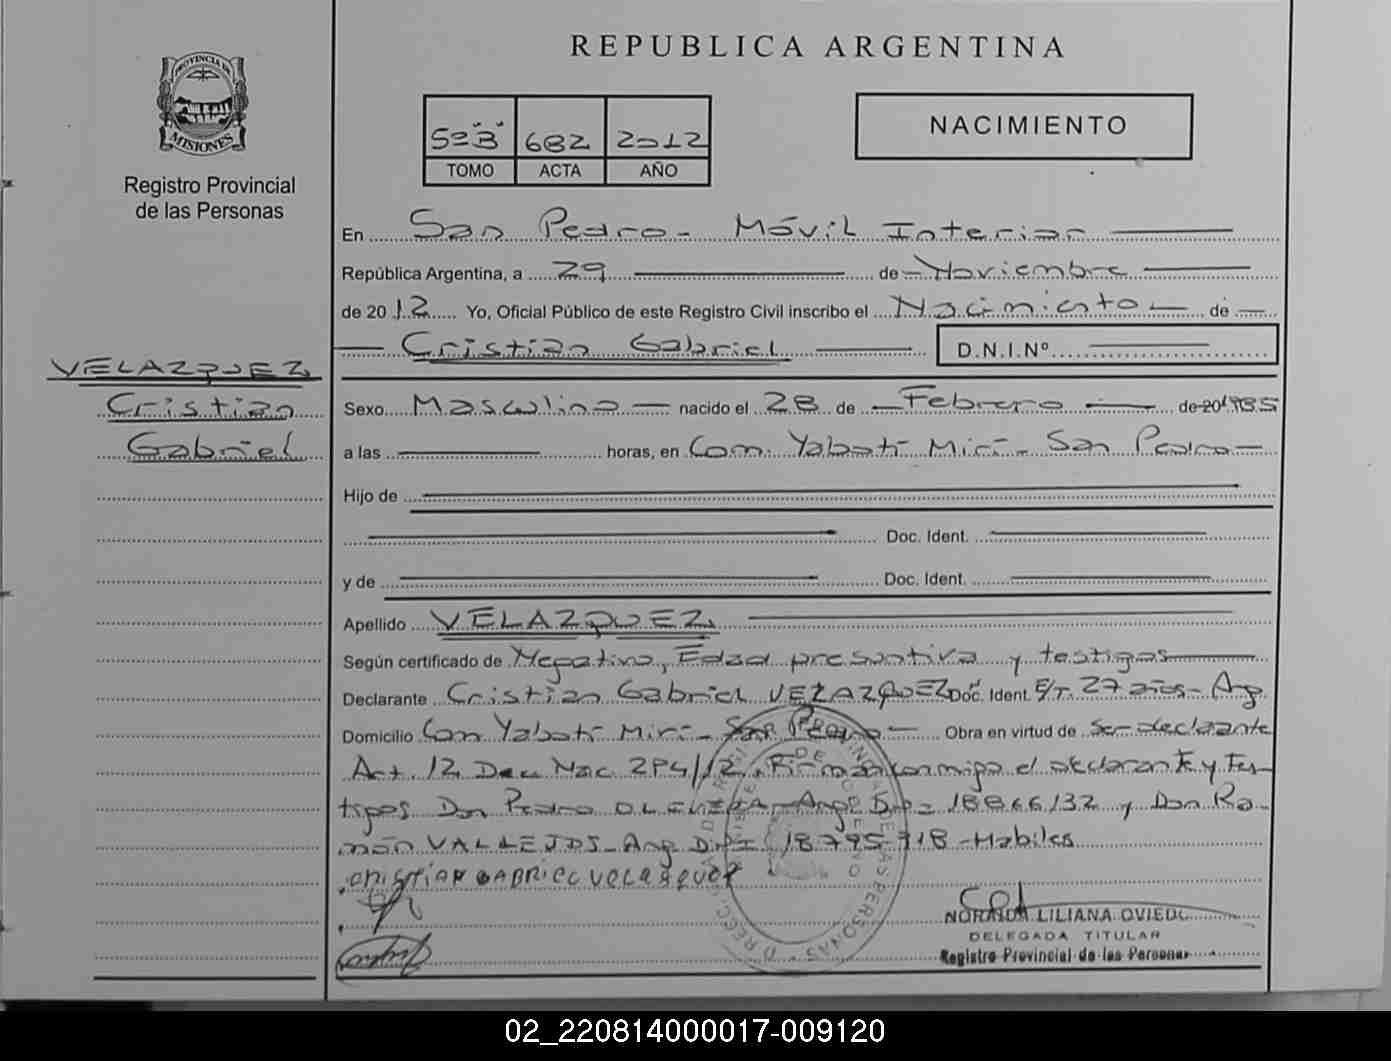 REPUBLICA ARGENTINA
PROVINCIA DE
MISIONES
Registro Provincial
de las Personas
5º"B" 682 2012
TOMO ACTA AÑO
NACIMIENTO
En San Pedro - Móvil Interior
República Argentina, a 29 de Noviembre
de 2012 Yo, Oficial Público de este Registro Civil inscribo el Nacimiento de
Cristian Gabriel D.N.I.Nº
VELAZQUEZ
Cristian
Gabriel
Sexo Masculino nacido el 28 de Febrero de 20 1985
a las horas, en Com. Yabotí Mirí - San Pedro
Hijo de
Doc. Ident.
y de Doc. Ident.
Apellido VELAZQUEZ
Según certificado de Negativo, Edad presuntiva y testigos
Declarante Cristian Gabriel VELAZQUEZ Doc. Ident. E/T. 27 años - Arg.
Domicilio Com Yabotí Mirí - San Pedro Obra en virtud de Ser declarante
Art. 12 Dec. Nac. 294/12. Firman conmigo el declarante y Tes-
tigos Don Pedro OLIVEIRA - Arg. D.N.I. 18866132 y Don Ra-
món VALLEJOS - Arg D.N.I. 18795718 - Habiles
CRISTIAN GABRIEL VELASQUEZ
NORAIDA LILIANA OVIEDO
DELEGADA TITULAR
Registro Provincial de las Personas
02_220814000017-009120